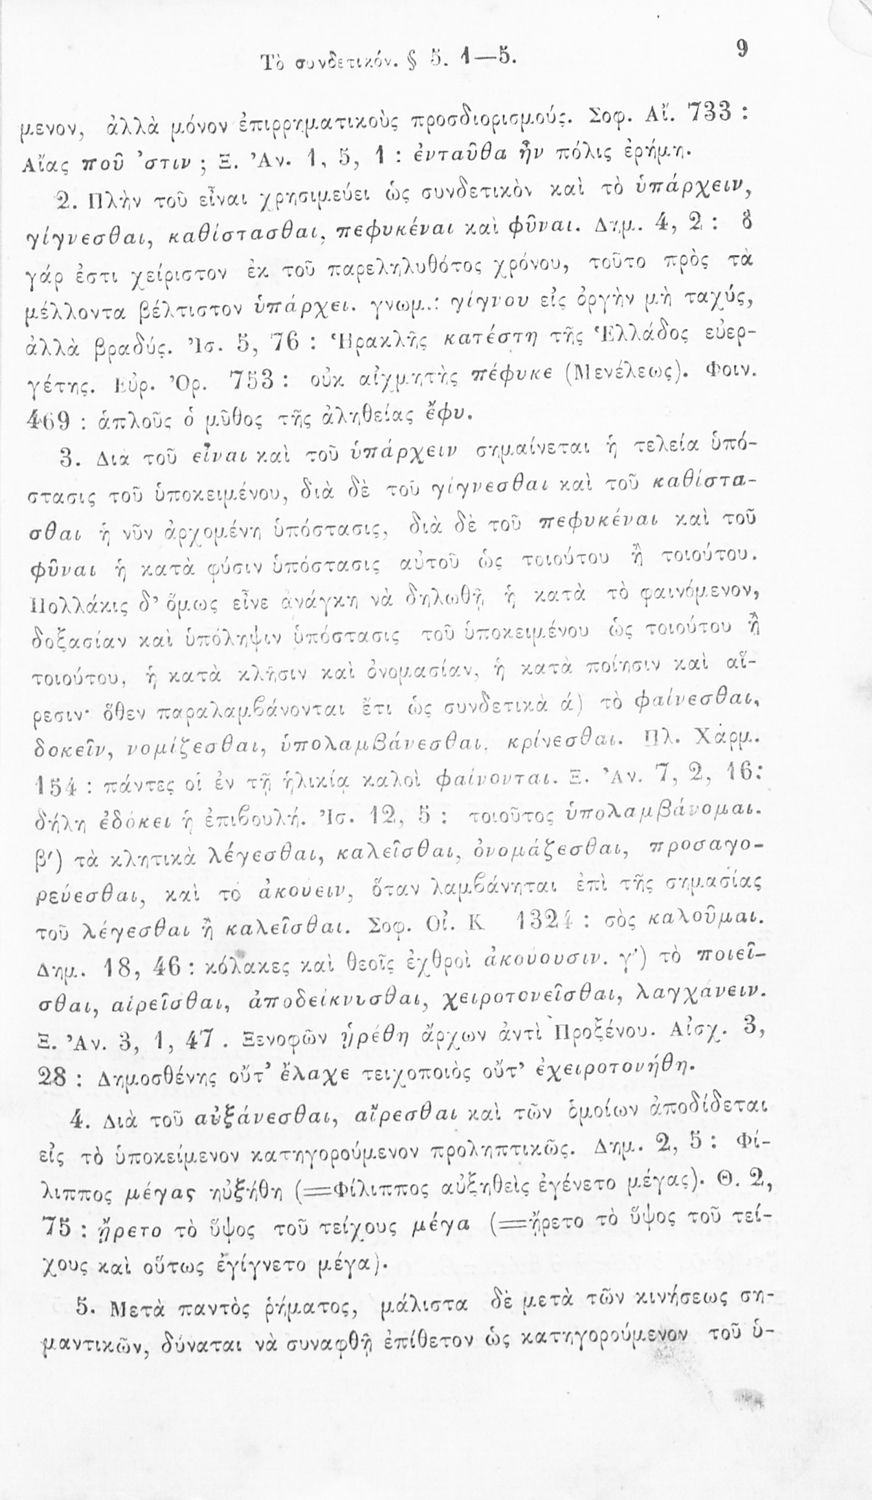 Τὸ συνδετικόν. § 5. 1—5. 9
μενον, ἀλλὰ μόνον ἐπιρρηματικοὺς προσδιορισμούς. Σοφ. Αἴ. 733 :
Αἴας ποῦ 'στιν ; Ξ. Ἀν. 1, 5, 1 : ἐνταῦθα ἦν πόλις ἐρήμη.
2. Πλὴν τοῦ εἶναι χρησιμεύει ὡς συνδετικὸν καὶ τὸ ὑπάρχειν,
γίγνεσθαι, καθίστασθαι, πεφυκέναι καὶ φῦναι. Δημ. 4, 2 : ὃ
γάρ ἐστι χείριστον ἐκ τοῦ παρεληλυθότος χρόνου, τοῦτο πρὸς τὰ
μέλλοντα βέλτιστον ὑπάρχει. γνωμ.: γίγνου εἰς ὀργὴν μὴ ταχύς,
ἀλλὰ βραδύς. Ἰσ. 5, 76 : Ἡρακλῆς κατέστη τῆς Ἑλλάδος εὐερ-
γέτης. Εὐρ. Ὀρ. 753 : οὐκ αἰχμητὴς πέφυκε (Μενέλεως). Φοιν.
469 : ἁπλοῦς ὁ μῦθος τῆς ἀληθείας ἔφυ.
3. Διὰ τοῦ εἶναι καὶ τοῦ ὑπάρχειν σημαίνεται ἡ τελεία ὑπό-
στασις τοῦ ὑποκειμένου, διὰ δὲ τοῦ γίγνεσθαι καὶ τοῦ καθίστα-
σθαι ἡ νῦν ἀρχομένη ὑπόστασις, διὰ δὲ τοῦ πεφυκέναι καὶ τοῦ
φῦναι ἡ κατὰ φύσιν ὑπόστασις αὐτοῦ ὡς τοιούτου ἢ τοιούτου.
Πολλάκις δ' ὅμως εἶνε ἀνάγκη νὰ δηλωθῇ ἡ κατὰ τὸ φαινόμενον,
δοξασίαν καὶ ὑπόληψιν ὑπόστασις τοῦ ὑποκειμένου ὡς τοιούτου ἢ
τοιούτου, ἡ κατὰ κλῆσιν καὶ ὀνομασίαν, ἡ κατὰ ποίησιν καὶ αἵ-
ρεσιν· ὅθεν παραλαμβάνονται ἔτι ὡς συνδετικὰ ά) τὸ φαίνεσθαι,
δοκεῖν, νομίζεσθαι, ὑπολαμβάνεσθαι, κρίνεσθαι. Πλ. Χάρμ.
154 : πάντες οἱ ἐν τῇ ἡλικίᾳ καλοὶ φαίνονται. Ξ. Ἀν. 7, 2, 16:
δήλη ἐδόκει ἡ ἐπιβουλή. Ἰσ. 12, 5 : τοιοῦτος ὑπολαμβάνομαι.
β') τὰ κλητικὰ λέγεσθαι, καλεῖσθαι, ὀνομάζεσθαι, προσαγο-
ρεύεσθαι, καὶ τὸ ἀκούειν, ὅταν λαμβάνηται ἐπὶ τῆς σημασίας
τοῦ λέγεσθαι ἢ καλεῖσθαι. Σοφ. Οἰ. Κ 1324 : σὸς καλοῦμαι.
Δημ. 18, 46 : κόλακες καὶ θεοῖς ἐχθροὶ ἀκούουσιν. γ') τὸ ποιεῖ-
σθαι, αἱρεῖσθαι, ἀποδείκνυσθαι, χειροτονεῖσθαι, λαγχάνειν.
Ξ. Ἀν. 3, 1, 47 . Ξενοφῶν ᾑρέθη ἄρχων ἀντὶ Προξένου. Αἰσχ. 3,
28 : Δημοσθένης οὔτ' ἔλαχε τειχοποιὸς οὔτ' ἐχειροτονήθη.
4. Διὰ τοῦ αὐξάνεσθαι, αἴρεσθαι καὶ τῶν ὁμοίων ἀποδίδεται
εἰς τὸ ὑποκείμενον κατηγορούμενον προληπτικῶς. Δημ. 2, 5 : Φί-
λιππος μέγας ηὐξήθη (=Φίλιππος αὐξηθεὶς ἐγένετο μέγας). Θ. 2,
75 : ᾔρετο τὸ ὕψος τοῦ τείχους μέγα (=ᾔρετο τὸ ὕψος τοῦ τεί-
χους καὶ οὕτως ἐγίγνετο μέγα).
5. Μετὰ παντὸς ῥήματος, μάλιστα δὲ μετὰ τῶν κινήσεως ση-
μαντικῶν, δύναται νὰ συναφθῇ ἐπίθετον ὡς κατηγορούμενον τοῦ ὑ-